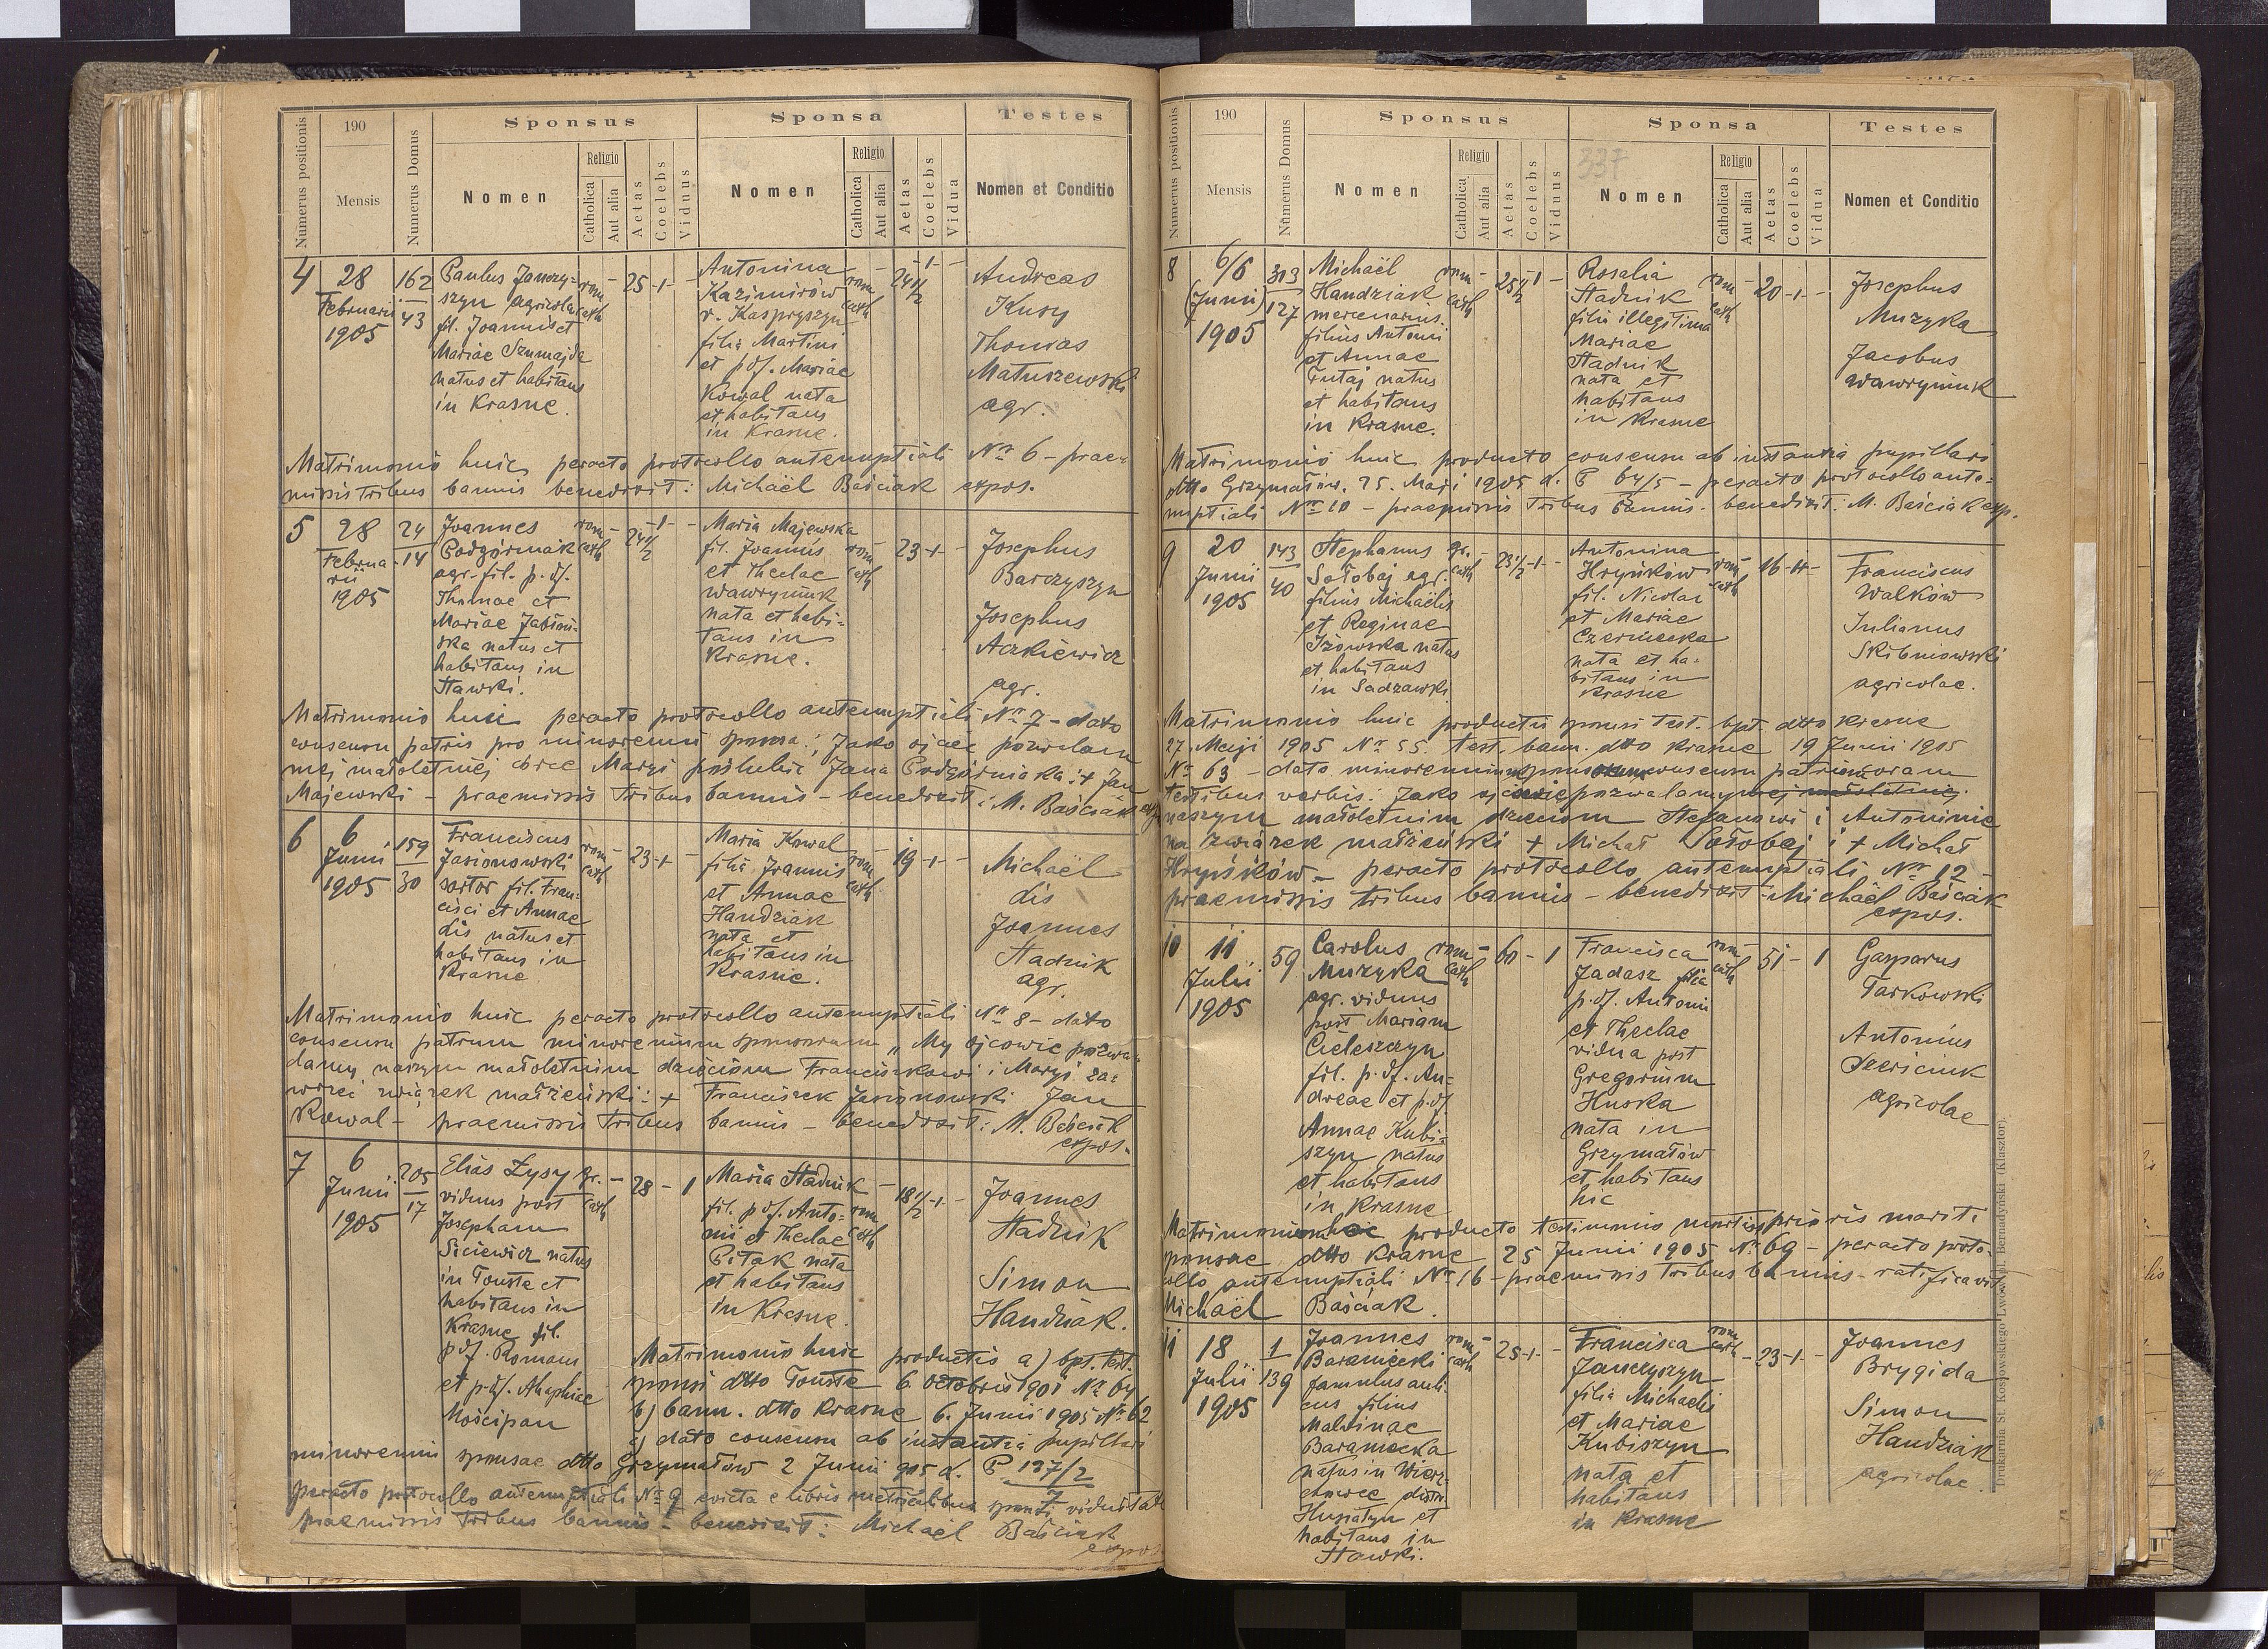 Numerus positionis
190
Mensis
Numerus Domus
Sponsus
Nomen
Religio
Catholica
Aut alia
Aetas
Coelebs
Viduus
Sponsa
Nomen
Religio
Catholica
Aut alia
Aetas
Coelebs
Vidua
Testes
Nomen et Conditio
4
28
Februarii
1905
162
43
Paulus Janczy-
szyn agricola
fil. Joannis et
Mariae Szumajda
natus et habitans
in Krasne.
rom
cath
- 25 -1-
Antonina
Kazimirów
v. Kaspryszyn
filia Martini
et p.df. Mariae
Kowal nata
et habitans
in Krasne.
rom
cath
24 1/2
-1-
Andreas
Kusy
Thomas
Matuszewski
agr.
Matrimonio huic peracto protocollo antenuptiali No 6 - prae-
missis tribus bannis benedixit: Michaël Baściak expos.
5
28
Februa-
rii
1905
24
14
Joannes
Podgórniak
agr. fil. p.df.
Thomae et
Mariae Jabłoń-
ska natus et
habitans in
Stawki.
rom
cath
24 1/2
-1-
Maria Majewska
fil. Joannis
et Theclae
Wawryniuk
nata et habi-
tans in
Krasne.
rom
cath
23 -1-
Josephus
Barczyszyn
Josephus
Aczkiewicz
agr.
Matrimonio huic peracto protocollo antenuptiali No 7 - dato
consensu patris pro minorenni sponsa: "Jako ojciec pozwalam
mej małoletniej córce Maryi poślubić Jana Podgórniaka": + Jan
Majewski - praemissis tribus bannis - benedixit: M. Baściak exp.
6
6
Junii
1905
159
30
Franciscus
Jasionowski
sartor fil. Fran-
cisci et Annae
Dis natus et
habitans in
Krasne
rom
cath
- 23 -1-
Maria Kowal
filia Joannis
et Annae
Handziak
nata et
habitans in
Krasne.
rom
cath
19 -1-
Michaël
Dis
Joannes
Stadnik
agr.
Matrimonio huic peracto protocollo antenuptiali No 8 - dato
consensu patrum minorennium sponsorum "My ojcowie pozwa-
lamy naszym małoletnim dzieciom Franciszkowi i Maryi za-
wrzeć związek małżeński": + Franciszek Jasionowski Jan
Kowal - praemissis tribus bannis - benedixit: M. Baściak
expos.
7
6
Junii
1905
205
17
Elias Łysy
viduus post
Josepham
Siciewicz natus
in Touste et
habitans in
Krasne fil.
p.df. Romani
et p.df. Ahaphiae
Mościpan
gr.
cath
- 28 - 1
Maria Stadnik
fil. p.df. Anto-
nii et Theclae
Pitak nata
et habitans
in Krasne.
rom
cath
18 1/2 -1-
Joannes
Stadnik
Simon
Handziak.
Matrimonio huic productis a) bpt. test.
sponsi dtto Touste 6. Octobris 1901 No 64
b) bann. dtto Krasne 6. Junii 1905 No 62
c) dato consensu ab instantia pupillari
minorennis sponsae dtto Grzymałów 2 Junii 905 d. P 137/2
7
peracto protocollo antenuptiali No 9 evicta e libris metricalibus sponsi viduitate
praemissis tribus bannis - benedixit: Michaël Baściak
expos.
Numerus positionis
190
Mensis
Numerus Domus
Sponsus
Nomen
Religio
Catholica
Aut alia
Aetas
Coelebs
Viduus
Sponsa
337
Nomen
Religio
Catholica
Aut alia
Aetas
Coelebs
Vidua
Testes
Nomen et Conditio
8
6/6
(Junii)
1905
313
127
Michaël
Handziak
mercenarius.
filius Antonii
et Annae
Tutaj natus
et habitans
in Krasne.
rom
cath
25 1/2 -1-
Rosalia
Stadnik
filia illegitima
Mariae
Stadnik
nata et
habitans
in Krasne
rom
cath
- 20 -1-
Josephus
Muzyka
Jacobus
Wawryniuk
Matrimonio huic producto consensu ab instantia pupillari
dtto Grzymałów. 25. Maji 1905 d. P 64/5 - peracto protocollo ante-
nuptiali No 10 - praemissis tribus bannis. benedixit: M. Baściak exp.
9
20
Junii
1905
143
40
Stephanus
Sołobaj agr.
filius Michaëlis
et Reginae
Iżowska natus
et habitans
in Sadzawki
gr.
cath
23 1/2 -1-
Antonina
Hryńków
fil. Nicolai
et Mariae
Czerniecka
nata et ha-
bitans in
Krasne
rom
cath
16 -1-
Franciscus
Walków
Julianus
Skibniowski
agricolae.
Matrimonio huic productis sponsi test. bpt. dtto Krasne
27. Maji 1905 No 55. test. bann. dtto Krasne 19 Junii 1905
No 63 - dato minorennium sponsorum consensu patrum coram
testibus verbis: Jako ojcowie pozwalamy
naszym małoletnim dzieciom Stefanowi i Antoninie
na związek małżeński + Michał Sołobaj i + Michał
Hryńków - peracto protocollo antenuptiali No 12 -
praemissis tribus bannis - benedixit: Michaël Baściak
expos.
10
11
Julii
1905
59
Carolus
Muzyka
agr. viduus
post Mariam
Cieleszczyn
fil. p.df. An-
dreae et p.df.
Annae Kubi-
szyn natus
et habitans
in Krasne
rom
cath
60 - 1
Francisca
Jadasz filia
p.df. Antonii
et Theclae
vidua post
Gregorium
Huska
nata in
Grzymałów
et habitans
hic
rom
cath
51 - 1
Gasparus
Tarkowski
Antonius
agricolae
producto testimonio mortis prioris mariti
sponsae dtto Krasne 25 Junii 1905 No 69 - peracto proto-
collo antenuptiali No 16 - praemissis tribus bannis - ratificavit
Michaël Baściak.
11
18
Julii
1905
1
139
Joannes
Baraniecki
famulus auli-
cus filius
Malvinae
Baraniecka
natus in Wierz-
chowce distr.
Husiatyn et
habitans in
Stawki.
rom
cath
25 -1-
Francisca
Janczyszyn
filia Michaelis
et Mariae
Kubiszyn
nata et
habitans
in Krasne
rom
cath
- 23 -1-
Joannes
Brygida
Simon
Handziak
agricolae.
Drukarnia St. Kossowskiego Lwów, pl. Bernadyński (Klasztor).